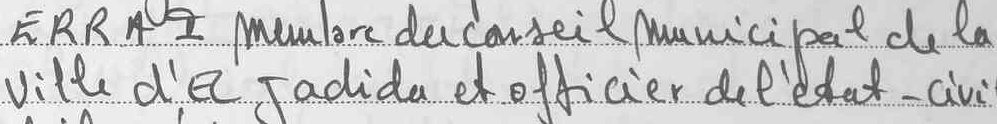 ERRAUI membre du conseil municipal de la
ville d'El Jadida et officier de l'état-civi